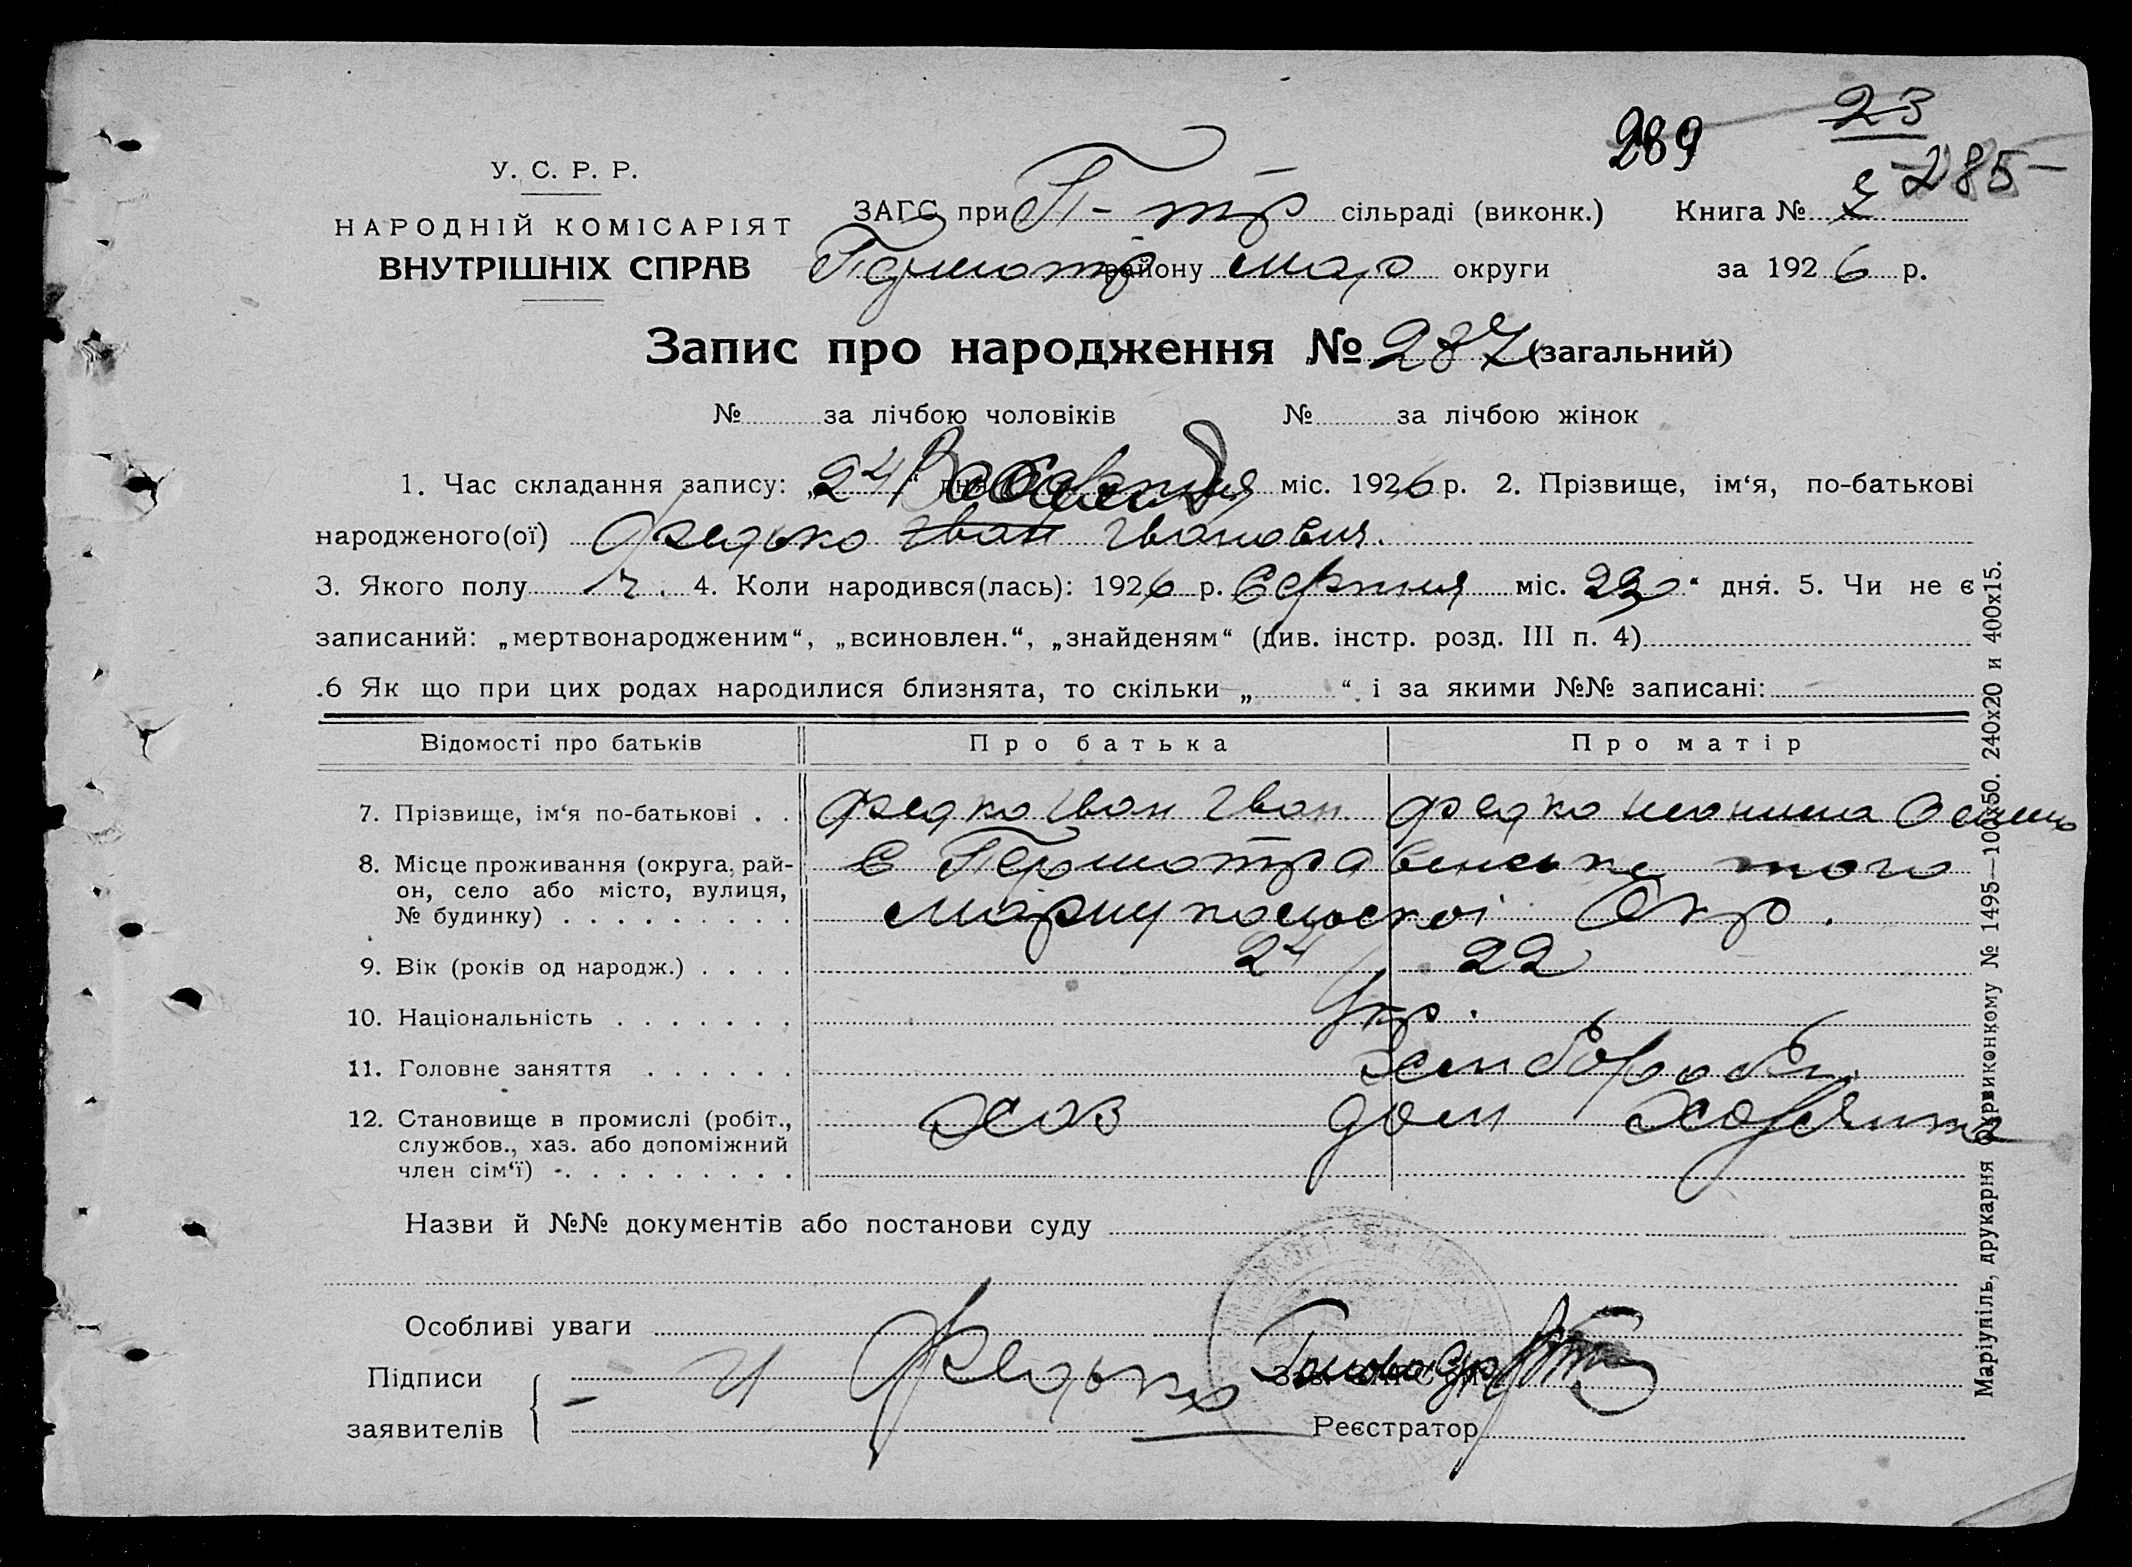 23
289
285
У. С. Р. Р.
НАРОДНІЙ КОМІСАРІЯТ
ВНУТРІШНІХ СПРАВ
ЗАГС при П-тр сільраді (виконк.) Книга №
району Мар округи за 1926 р.
Запис про народження № 287 (загальний)
№ за лічбою чоловіків № за лічбою жінок
1. Час складання запису: „24“ дня міс. 1926 р. 2. Прізвище, ім‘я, по-батькові
народженого(ої) Федько Іван Іванович.
3. Якого полу ч. 4. Коли народився(лась): 1926 р. Серпня міс. “ дня. 5. Чи не є
записаний: „мертвонародженим“, „всиновлен.“, „знайденям“ (див. інстр. розд. III п. 4)
.6 Як що при цих родах народилися близнята, то скільки „ “ і за якими №№ записані:
Відомості про батьків Про батька Про матір
7. Прізвище, ім‘я по-батькові . . Федко Іван Іван Федко
8. Місце проживання (округа, рай-
он, село або місто, вулиця,
№ будинку) . . . . . . . . .
С Першотравенське того
Маріупольскої Окр.
9. Вік (років од народж.) . . . . 24 22
10. Національність . . . . . . . Укр.
11. Головне заняття . . . . . . Хліборобн.
12. Становище в промислі (робіт.,
службов., хаз. або допоміжний
член сім‘ї) - . . . . . . . . .
Хоз дом
Назви й №№ документів або постанови суду
Особливі уваги
Підписи
заявителів
Федько
Реєстратор
Маріупіль, друкарня Окрвиконкому № 1495—100х50. 240х20 и 400х15.